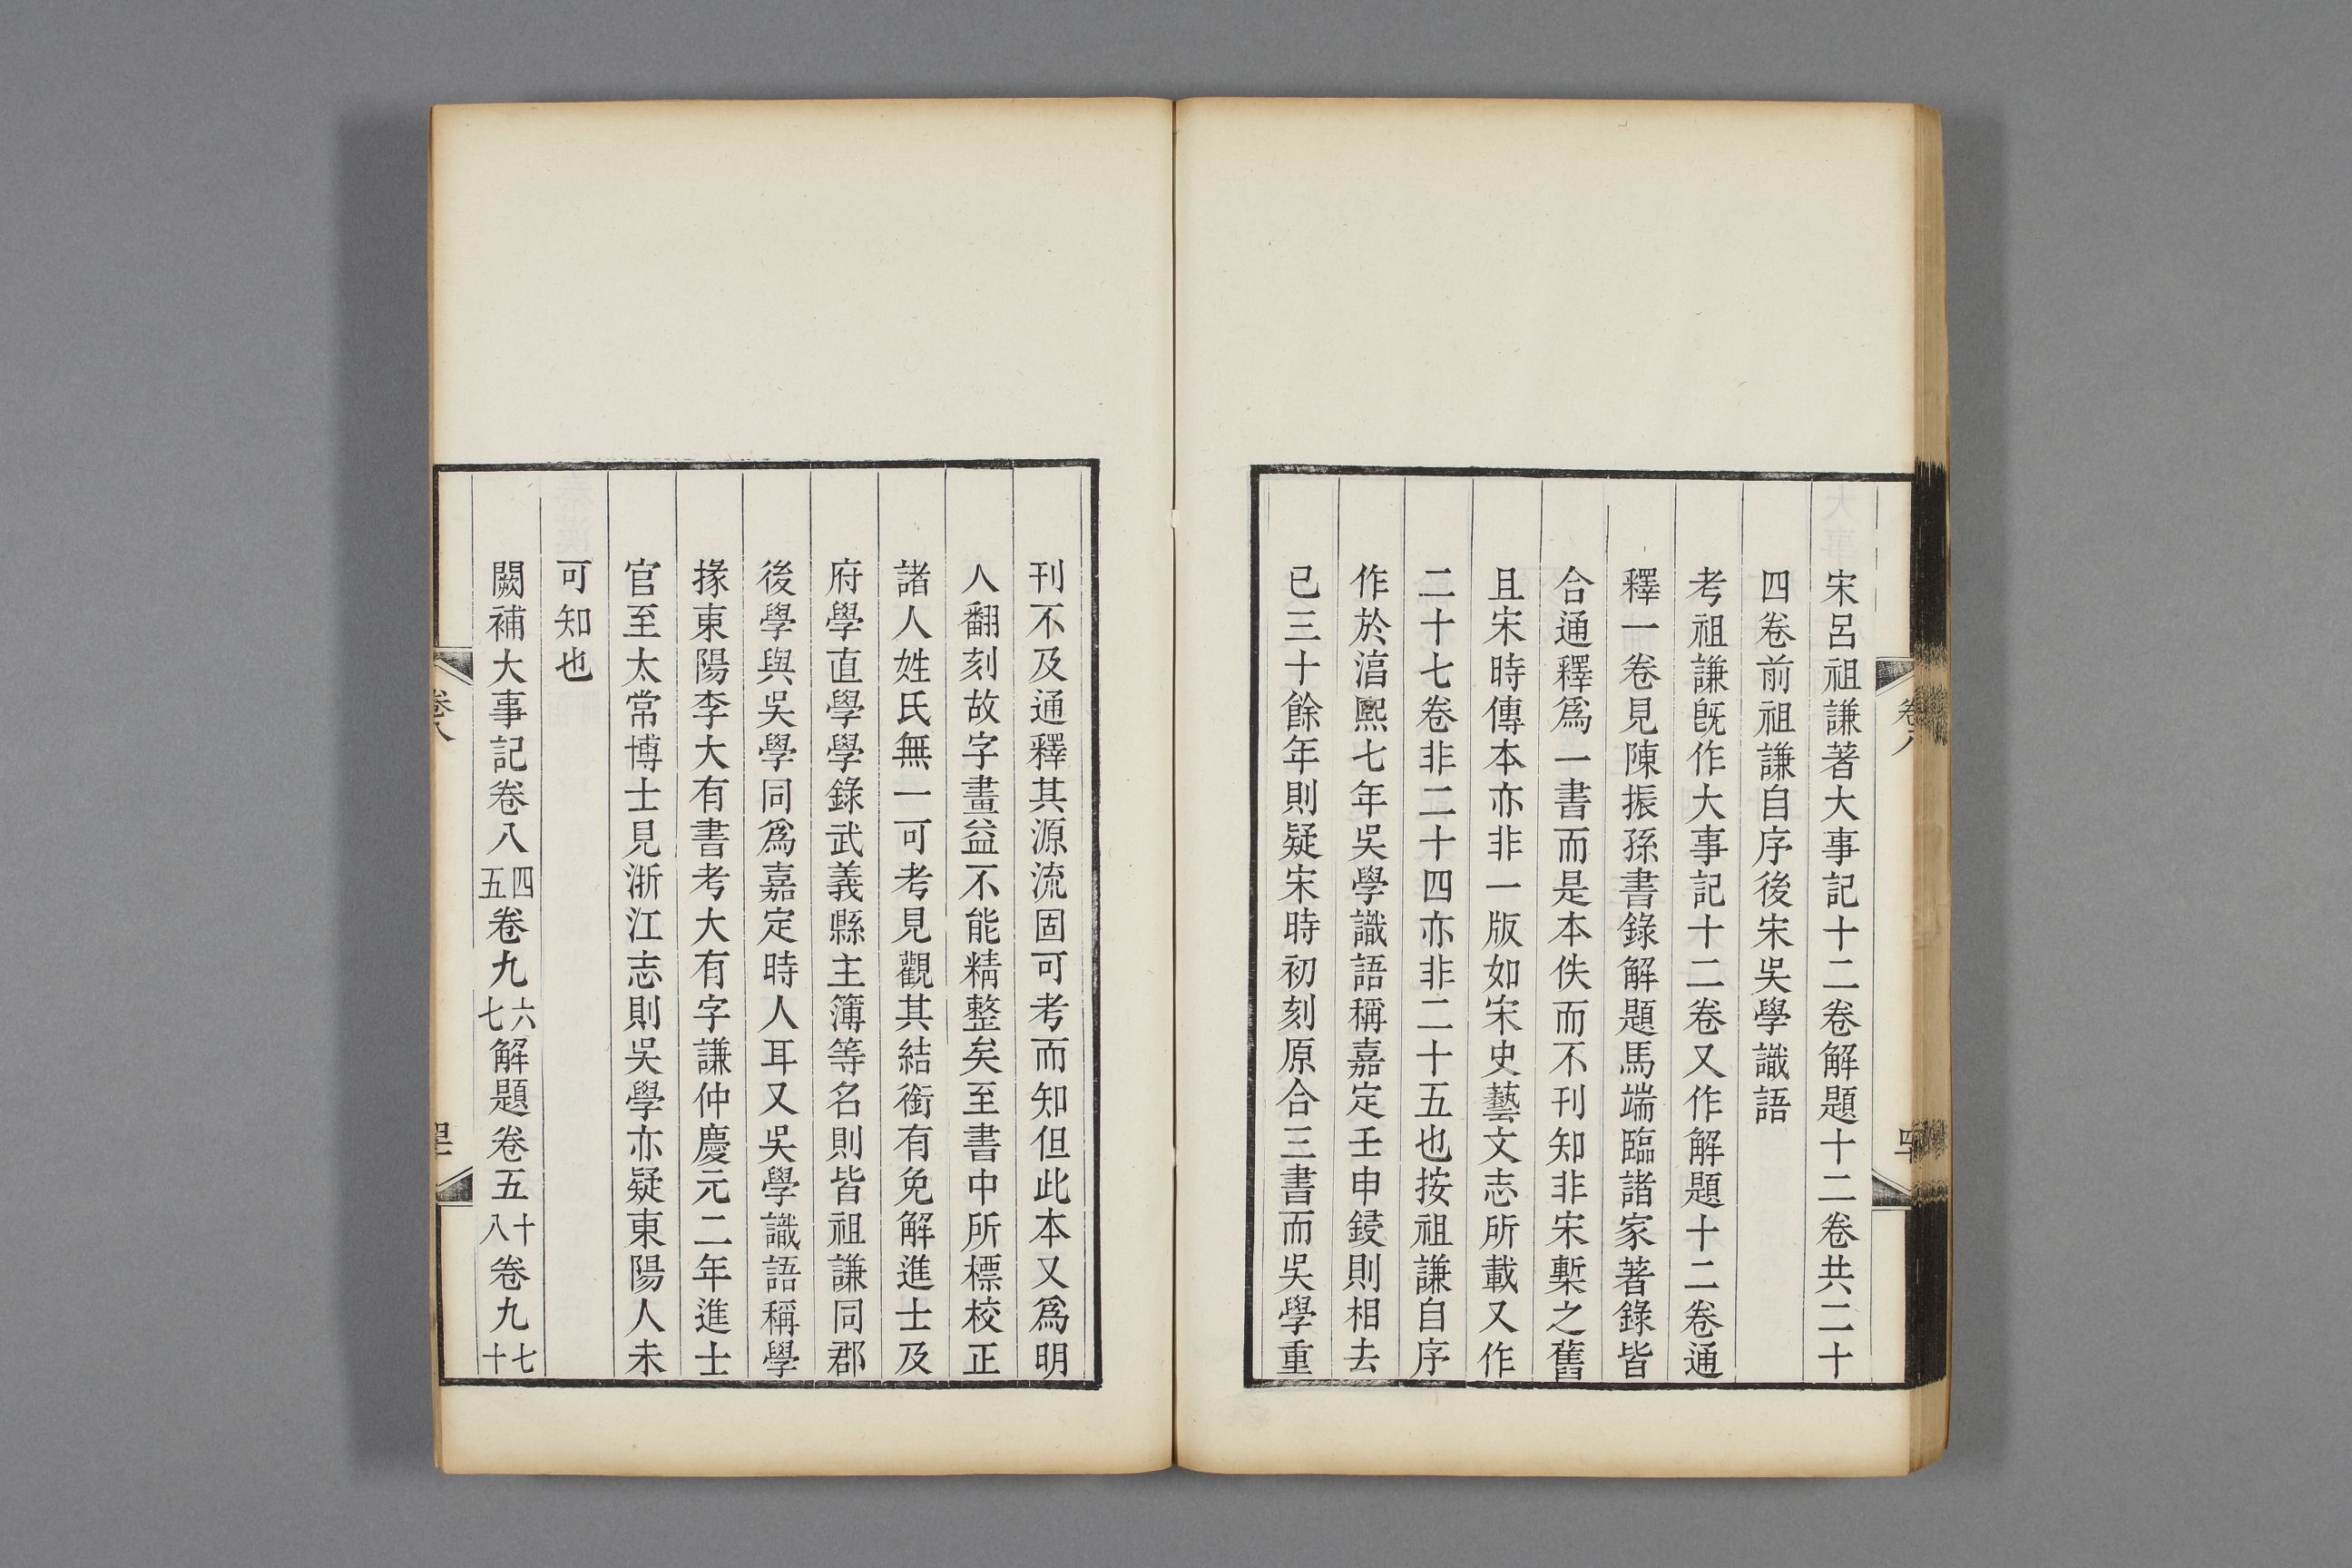 宋呂祖謙著大事記十二卷解題十二卷共二十
四卷前祖謙自序後宋吳學識語
考祖謙旣作大事記十二卷又作解題十二卷通
釋一卷見陳振孫書錄解題馬端臨諸家著錄皆
合通釋爲一書而是本佚而不刊知非宋槧之舊
且宋時傳本亦非一版如宋史藝文志所載又作
二十七卷非二十四亦非二十五也按祖謙自序
作於淯熙七年吳學識語稱嘉定壬申鋟則相去
已三十餘年則疑宋時初刻原合三書而吳學重
卷八
刊不及通釋其源流固可考而知但此本又爲明
人翻刻故字畫益不能精整矣至書中所標校正
諸人姓氏無一可考見觀其結銜有免解進士及
府學直學學錄武義縣主簿等名則皆祖謙同郡
後學與吳學同爲嘉定時人耳又吳學識語稱學
掾東陽李大有書考大有字謙仲慶元二年進士
官至太常博士見浙江志則吳學亦疑東陽人未
可知也
闕補大事記卷八四五卷九六七解題卷五十八卷九七十
卷八